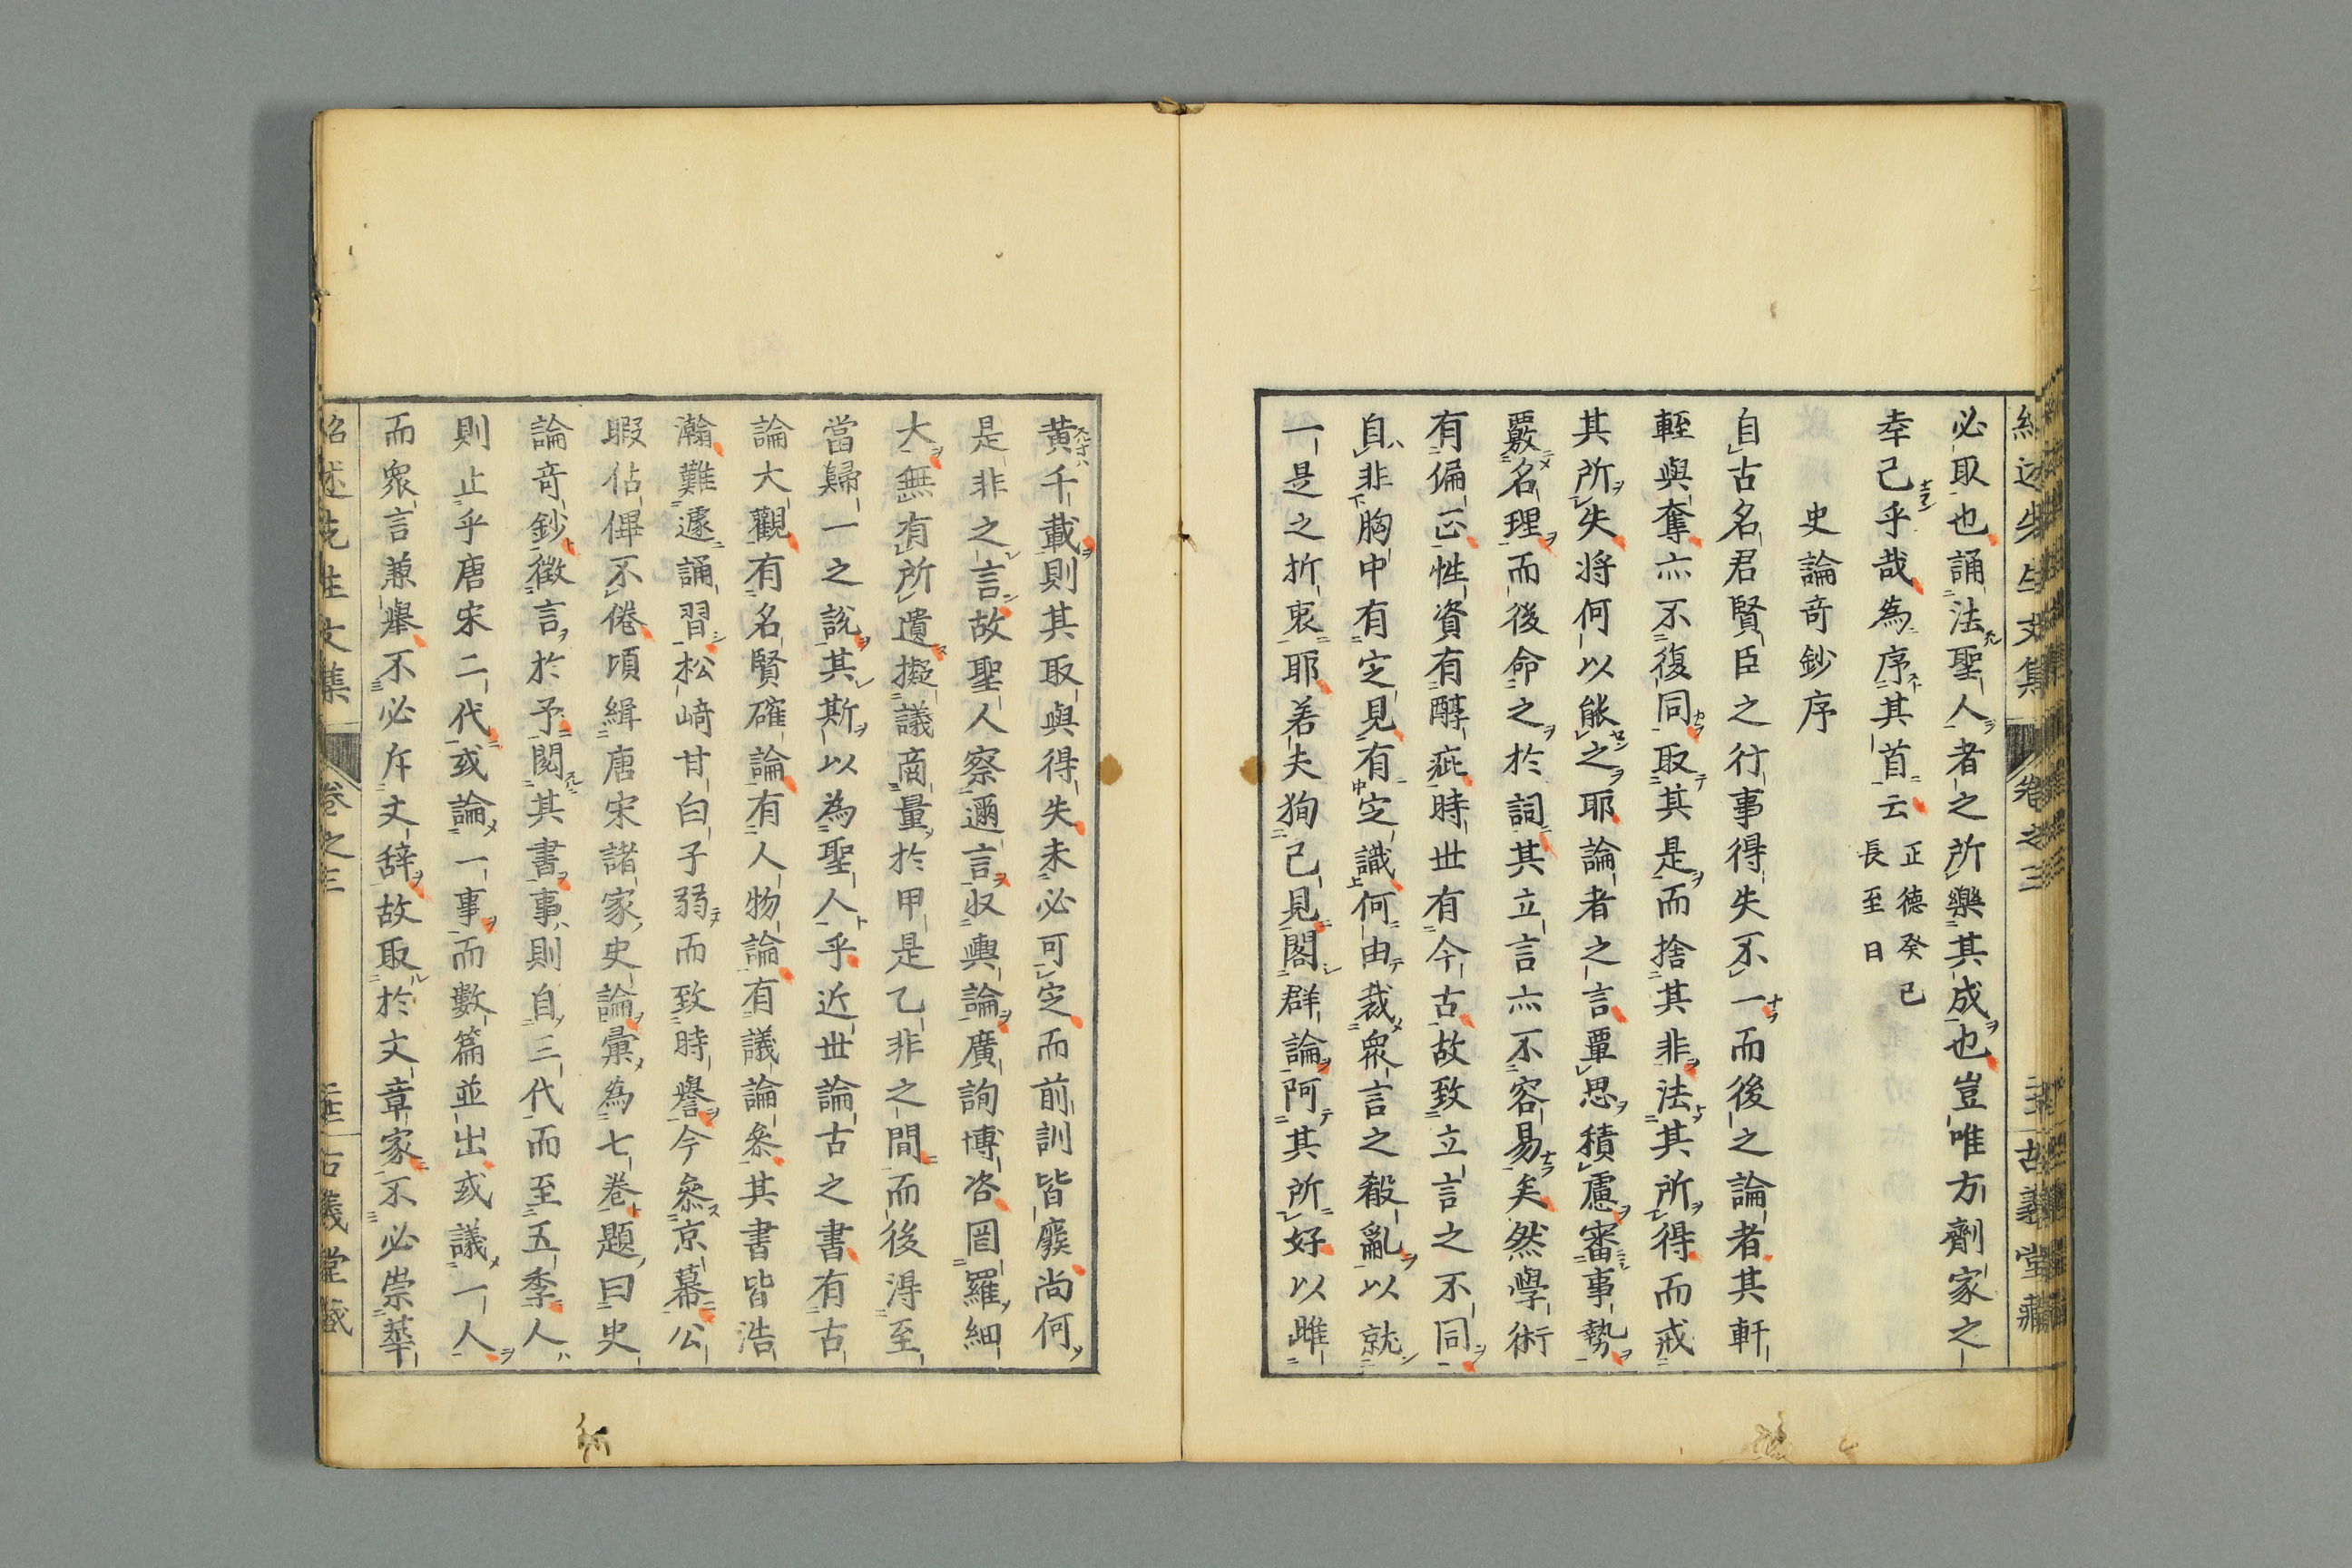 必取也誦法聖人者之所樂其成也豈唯方劑家之
幸己乎哉為序其首云正德癸巳
長至日
史論奇鈔序
自古名君賢臣之行事得失不一而後之論者其軒
輊與奪亦不復同取其是而捨其非法其所得而戒
其所失将何以能之耶論者之言覃思積慮審事勢
覈名理而後命之於詞其立言亦不容易矣然學術
有偏正性資有醇疵時世有今古故致立言之不同
自非胸中有定見有定識何由裁衆言之殽亂以就
一是之折衷耶若夫狥己見閣群論阿其所好以雌
黄千載則其取與得失未必可定而前訓皆廢尚何
是非之言故聖人察邇言收輿論廣詢博咨罔羅細
大無有所遺擬議商量於甲是乙非之間而後得至
當歸一之說其斯以為聖人乎近世論古之書有古
論大觀有名賢確論有人物論有議論叅其書皆浩
瀚難遽誦習松崎甘白子弱而致時譽今叅京幕公
暇佔僤不倦頃緝唐宋諸家史論彙為七卷題曰史
論奇鈔徵言於予閱其書事則自三代而至五季人
則止乎唐宋二代或論一事而數篇並出或議一人
而衆言兼擧不必斥文辞故取於文章家不必崇華
紹述先生文集
卷之三
古義堂藏